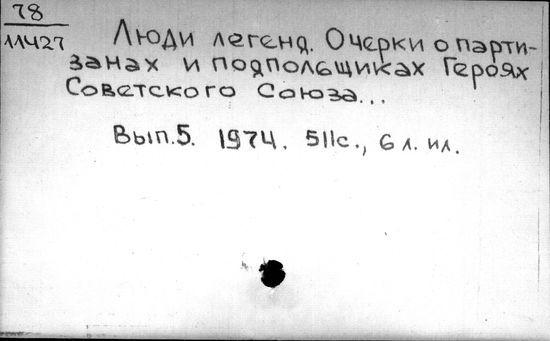 78
11427
Люди легенд. Очерки о парти-
занах и подпольщиках Героях
Советского Союза...
Вып.5. 1974. 511с., 6 л. ил.